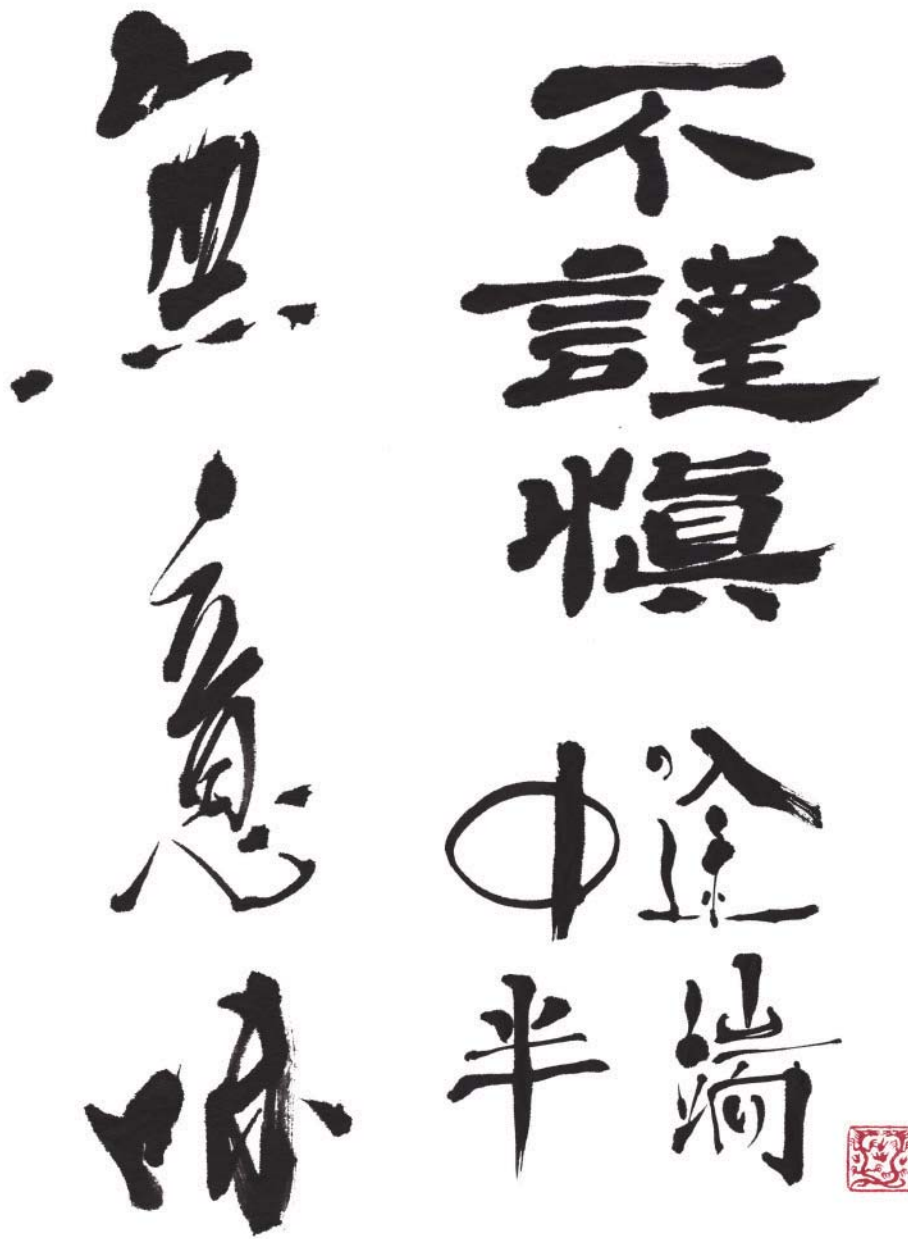 不謹慎
中途
半端
無意味